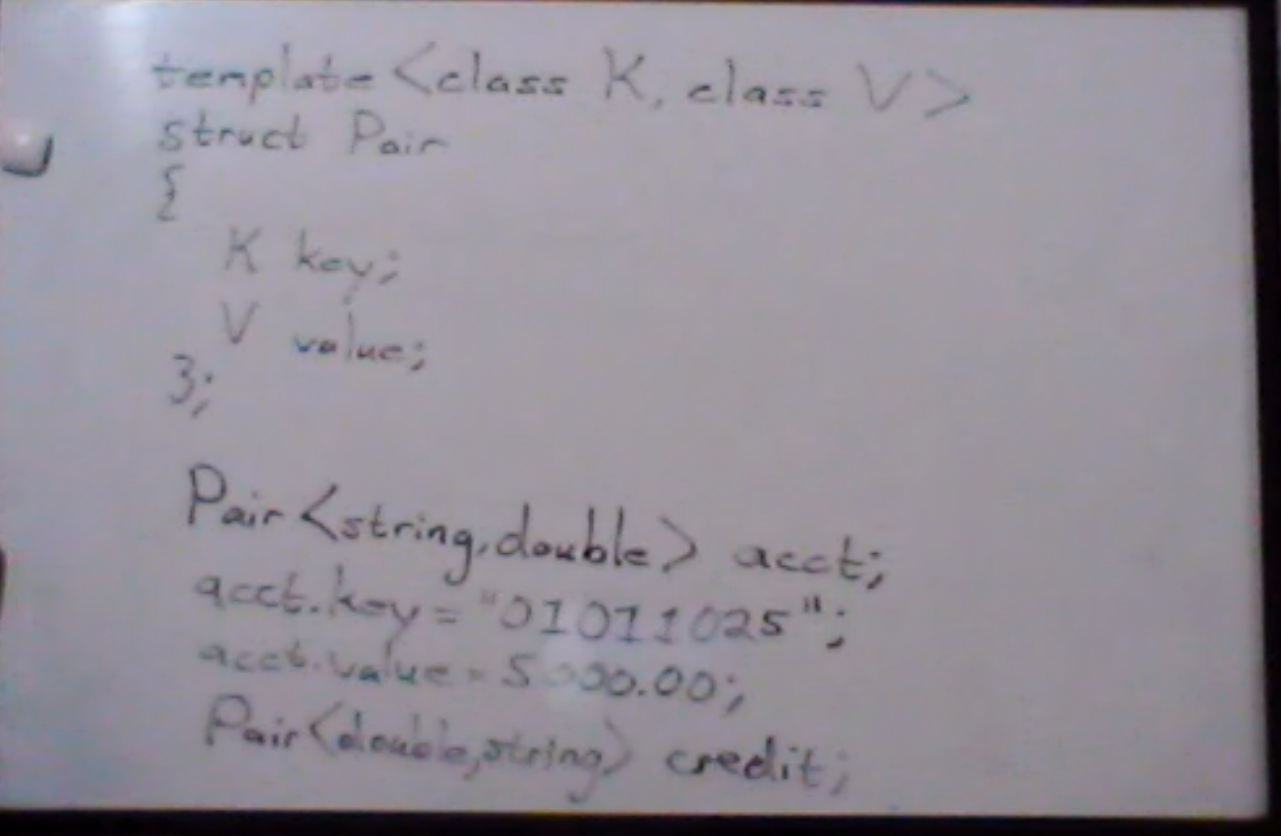 template <class K, class V>
struct Pair
{
K key;
V value;
};
Pair <string,double> acct;
acct.key = "01011025";
acct.value = 5000.00;
Pair<double,string> credit;